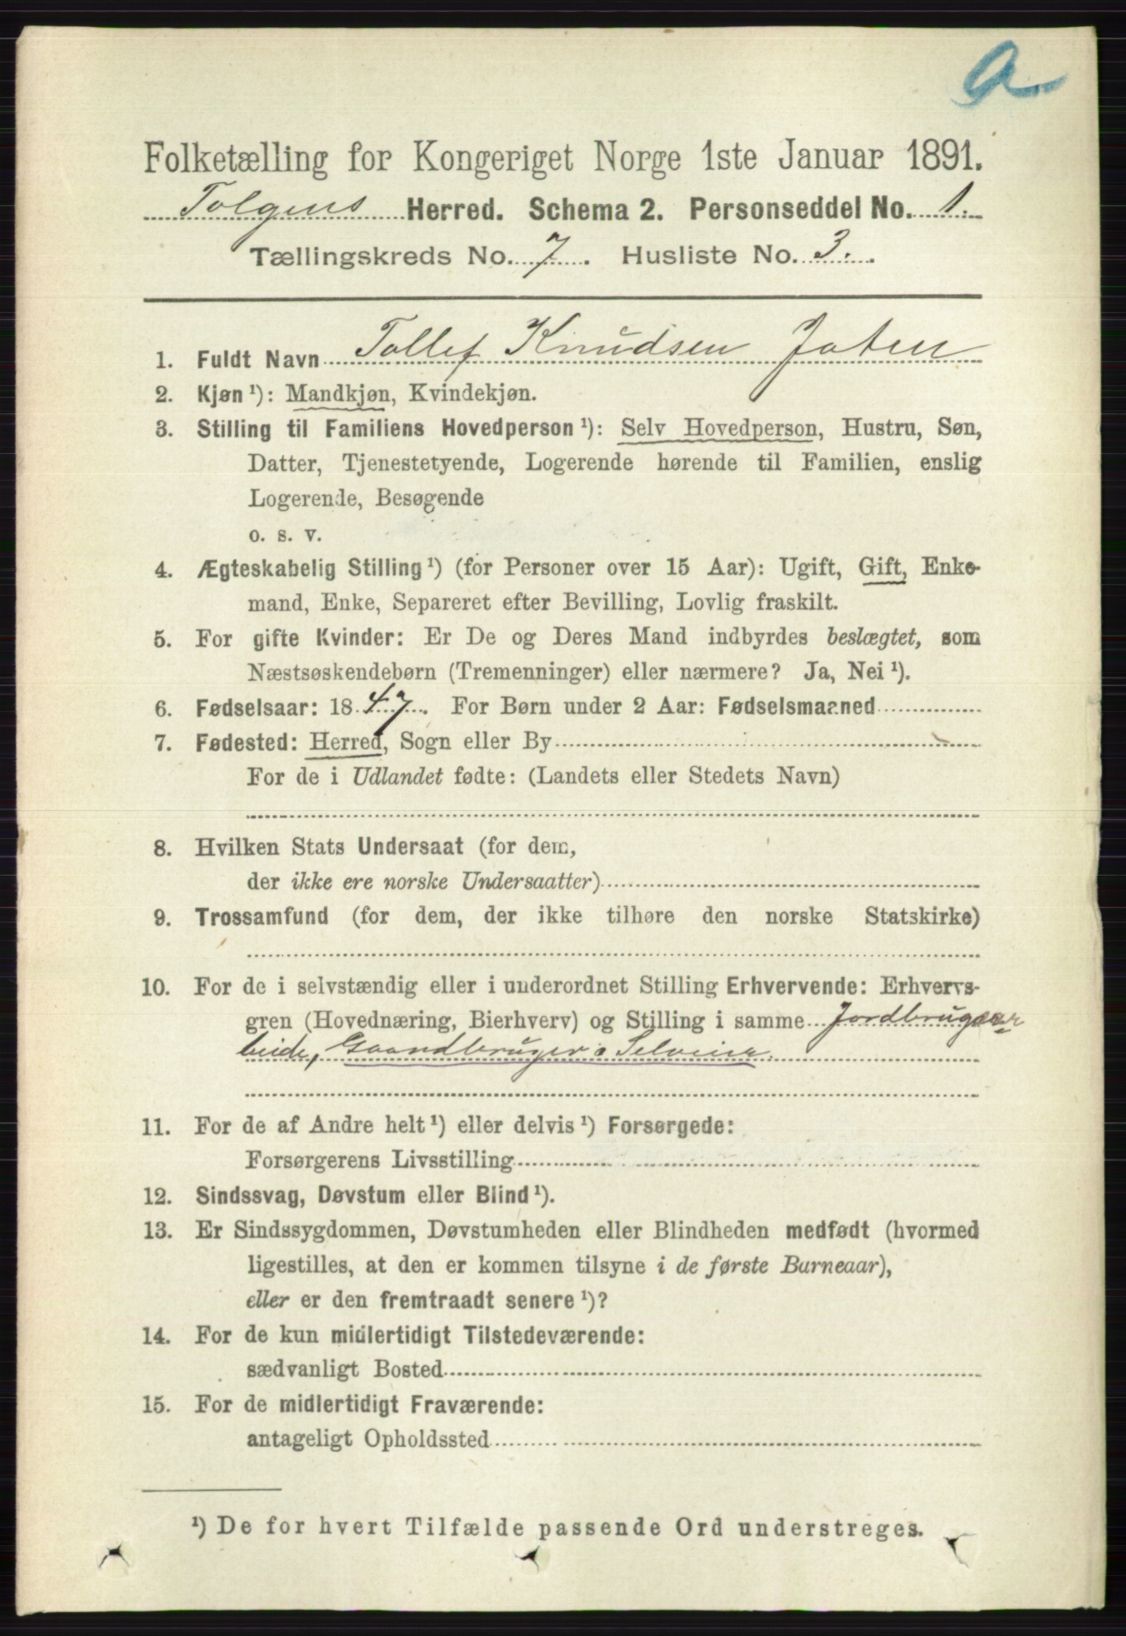 a
Folketælling for Kongeriget Norge 1ste Januar 1891.
Tolgens Herred. Schema 2. Personseddel No. 1.
Tællingskreds No. 7. Husliste No. 3.
1. Fuldt Navn Tollef Knudsen Joten
2. Kjøn ¹): Mandkjøn, Kvindekjøn.
3. Stilling til Familiens Hovedperson ¹): Selv Hovedperson, Hustru, Søn,
Datter, Tjenestetyende, Logerende hørende til Familien, enslig
Logerende, Besøgende
o. s. v.
4. Ægteskabelig Stilling ¹) (for Personer over 15 Aar): Ugift, Gift, Enke-
mand, Enke, Separeret efter Bevilling, Lovlig fraskilt.
5. For gifte Kvinder: Er De og Deres Mand indbyrdes beslægtet, som
Næstsøskendebørn (Tremenninger) eller nærmere? Ja, Nei ¹).
6. Fødselsaar: 1847. For Børn under 2 Aar: Fødselsmaaned
7. Fødested: Herred, Sogn eller By
For de i Udlandet fødte: (Landets eller Stedets Navn)
8. Hvilken Stats Undersaat (for dem,
der ikke ere norske Undersaatter)
9. Trossamfund (for dem, der ikke tilhøre den norske Statskirke)
10. For de i selvstændig eller i underordnet Stilling Erhvervende: Erhvervs-
gren (Hovednæring, Bierhverv) og Stilling i samme Jordbrugsar
beide, Gaardbruger Selveier
11. For de af Andre helt ¹) eller delvis ¹) Forsørgede:
Forsørgerens Livsstilling
12. Sindssvag, Døvstum eller Blind ¹).
13. Er Sindssygdommen, Døvstumheden eller Blindheden medfødt (hvormed
ligestilles, at den er kommen tilsyne i de første Barneaar),
eller er den fremtraadt senere ¹)?
14. For de kun midlertidigt Tilstedeværende:
sædvanligt Bosted
15. For de midlertidigt Fraværende:
antageligt Opholdssted
¹) De for hvert Tilfælde passende Ord understreges.